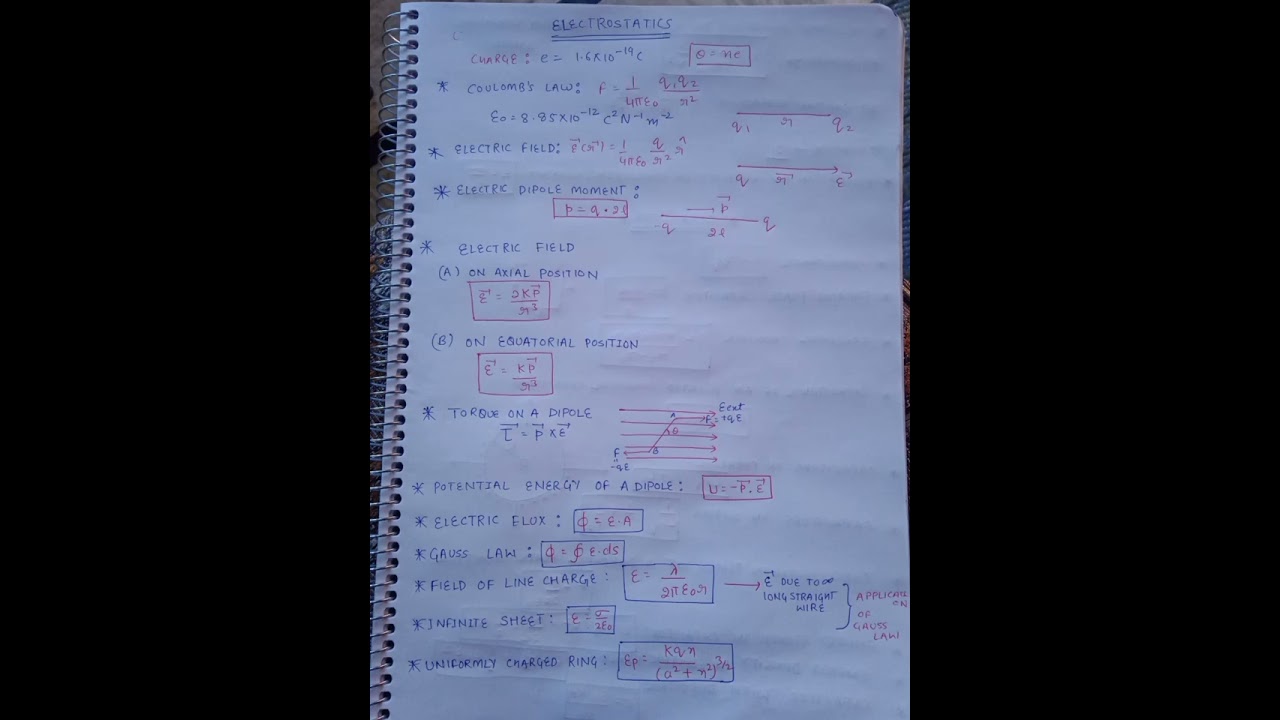 ELECTROSTATICS
CHARGE: e = 1.6×10⁻¹⁹C   Q = ne
* COULOMB'S LAW: F = 1/4πε₀ q₁q₂/r²
ε₀ = 8.85×10⁻¹² C²N⁻¹m⁻²
q₁ r q₂
* ELECTRIC FIELD: E⃗(r⃗) = 1/4πε₀ q/r² r̂
q r⃗ E⃗
* ELECTRIC DIPOLE MOMENT:
p = q · 2l
p⃗
-q 2l q
* ELECTRIC FIELD
(A) ON AXIAL POSITION
E⃗ = 2KP⃗/r³
(B) ON EQUATORIAL POSITION
E⃗ = KP⃗/r³
* TORQUE ON A DIPOLE
τ⃗ = p⃗ × E⃗
Eext
A F = +qE
θ
F B
"
-qE
* POTENTIAL ENERGY OF A DIPOLE: U = -P⃗.E⃗
* ELECTRIC FLUX: ϕ = E.A
* GAUSS LAW: ϕ = ∮ E.ds
* FIELD OF LINE CHARGE: E = λ/2πε₀r → E⃗ DUE TO ∞
LONG STRAIGHT
WIRE
APPLICATI
ON
OF
GAUSS
LAW
* INFINITE SHEET: E = σ/2ε₀
* UNIFORMLY CHARGED RING: Ep = Kqx/(a² + x²)^3/2